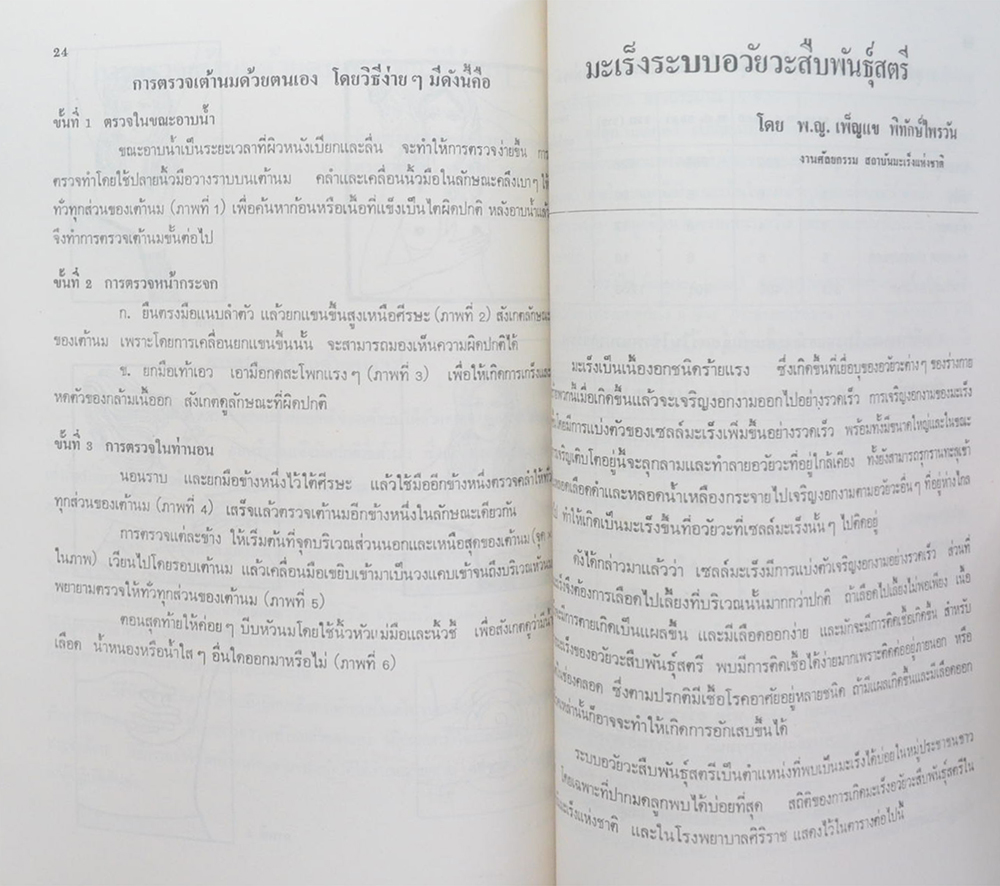 24
การตรวจเต้านมด้วยตนเอง โดยวิธีง่ายๆ มีดังนี้คือ
ขั้นที่ 1 ตรวจในขณะอาบน้ำ
ขณะอาบน้ำเป็นระยะเวลาที่ผิวหนังเปียกและลื่น จะทำให้การตรวจง่ายขึ้น การ
ตรวจทำโดยใช้ปลายนิ้วมือวางราบบนเต้านม คลำและเคลื่อนนิ้วมือในลักษณะคลึงเบาๆ ให้
ทั่วทุกส่วนของเต้านม (ภาพที่ 1) เพื่อค้นหาก้อนหรือเนื้อที่แข็งเป็นไตผิดปกติ หลังอาบน้ำแล้ว
จึงทำการตรวจเต้านมขั้นต่อไป
ขั้นที่ 2 การตรวจหน้ากระจก
ก. ยืนตรงมือแนบลำตัว แล้วยกแขนขึ้นสูงเหนือศีรษะ (ภาพที่ 2) สังเกตลักษณะ
ของเต้านม เพราะโดยการเคลื่อนยกแขนขึ้นนั้น จะสามารถมองเห็นความผิดปกติได้
ข. ยกมือเท้าเอว เอามือกดสะโพกแรงๆ (ภาพที่ 3) เพื่อให้เกิดการเกร็งและ
หดตัวของกล้ามเนื้ออก สังเกตดูลักษณะที่ผิดปกติ
ขั้นที่ 3 การตรวจในท่านอน
นอนราบ และยกมือข้างหนึ่งไว้ใต้ศีรษะ แล้วใช้มืออีกข้างหนึ่งตรวจคลำให้ทั่ว
ทุกส่วนของเต้านม (ภาพที่ 4) เสร็จแล้วตรวจเต้านมอีกข้างหนึ่งในลักษณะเดียวกัน
การตรวจแต่ละข้าง ให้เริ่มต้นที่จุดบริเวณส่วนนอกและเหนือสุดของเต้านม (จุด ×
ในภาพ) เวียนไปโดยรอบเต้านม แล้วเคลื่อนมือเขยิบเข้ามาเป็นวงแคบเข้าจนถึงบริเวณหัวนม
พยายามตรวจให้ทั่วทุกส่วนของเต้านม (ภาพที่ 5)
ตอนสุดท้ายให้ค่อยๆ บีบหัวนมโดยใช้นิ้วหัวแม่มือและนิ้วชี้ เพื่อสังเกตดูว่ามีน้ำ
เลือด น้ำหนองหรือน้ำใสๆ อื่นใดออกมาหรือไม่ (ภาพที่ 6)
มะเร็งระบบอวัยวะสืบพันธุ์สตรี
โดย พ.ญ. เพ็ญแข พิทักษ์ไพรวัน
งานศัลยกรรม สถาบันมะเร็งแห่งชาติ
มะเร็งเป็นเนื้องอกชนิดร้ายแรง ซึ่งเกิดขึ้นที่เยื่อบุของอวัยวะต่างๆ ของร่างกาย
พวกนี้เมื่อเกิดขึ้นแล้วจะเจริญงอกงามออกไปอย่างรวดเร็ว การเจริญงอกงามของมะเร็ง
โดยมีการแบ่งตัวของเซลล์มะเร็งเพิ่มขึ้นอย่างรวดเร็ว พร้อมทั้งมีขนาดใหญ่และในขณะ
เจริญเติบโตอยู่นี้จะลุกลามและทำลายอวัยวะที่อยู่ใกล้เคียง ทั้งยังสามารถรุกรานทะลุเข้า
เลือดดำและหลอดน้ำเหลืองกระจายไปเจริญงอกงามตามอวัยวะอื่นๆ ที่อยู่ห่างไกล
ทำให้เกิดเป็นมะเร็งขึ้นที่อวัยวะที่เซลล์มะเร็งนั้นๆ ไปติดอยู่
ดังได้กล่าวมาแล้วว่า เซลล์มะเร็งมีการแบ่งตัวเจริญงอกงามอย่างรวดเร็ว ส่วนที่
จึงต้องการเลือดไปเลี้ยงที่บริเวณนั้นมากกว่าปกติ ถ้าเลือดไปเลี้ยงไม่พอเพียง เนื้อ
มีการตายเกิดเป็นแผลขึ้น และมีเลือดออกง่าย และมักจะมีการติดเชื้อเกิดขึ้น สำหรับ
มะเร็งของอวัยวะสืบพันธุ์สตรี พบมีการติดเชื้อได้ง่ายมากเพราะติดต่ออยู่ภายนอก หรือ
ในช่องคลอด ซึ่งตามปรกติมีเชื้อโรคอาศัยอยู่หลายชนิด ถ้ามีแผลเกิดขึ้นและมีเลือดออก
เหล่านั้นก็อาจจะทำให้เกิดการอักเสบขึ้นได้
ระบบอวัยวะสืบพันธุ์สตรีเป็นตำแหน่งที่พบเป็นมะเร็งได้บ่อยในหมู่ประชาชนชาว
โดยเฉพาะที่ปากมดลูกพบได้บ่อยที่สุด สถิติของการเกิดมะเร็งอวัยวะสืบพันธุ์สตรีใน
มะเร็งแห่งชาติ และในโรงพยาบาลศิริราช แสดงไว้ในตารางต่อไปนี้